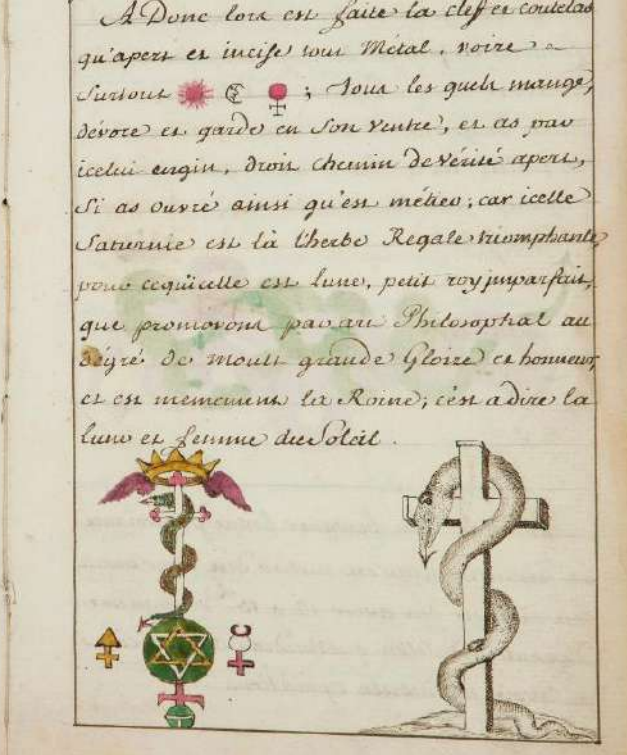 A Donc lors est faite la clef et coutelas
qu'apert et incise tout Métal, voire
surtout ☉ ☾ ♀ ; tous les quels mange,
dévore et garde en son ventre, et as par
icelui engin, droit chemin de vérité apert,
si as ouvré ainsi qu'est métier; car icelle
Saturnie est là l'herbe Regale triomphante,
pour cequ'icelle est lune, petit roy jmparfait,
que promovons par art Philosophal au
dégré de moult grande Gloire et honneur,
et est memement la Roine; c'est adire la
lune et femme du Soleil .